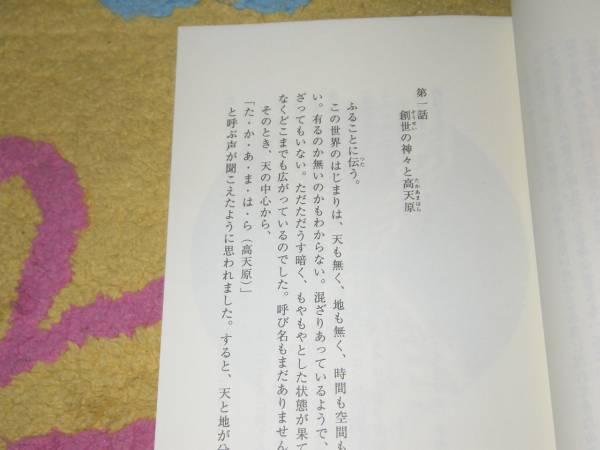 第一話
創世の神々と高天原
そうせい
たかあまはら
ふることに伝う。
つた
この世界のはじまりは、天も無く、地も無く、時間も空間も
い。有るのか無いのかもわからない。混ざりあっているようで、
ざってもいない。ただただうす暗く、もやもやとした状態が果て
なくどこまでも広がっているのでした。呼び名もまだありません
そのとき、天の中心から、
「た・か・あ・ま・は・ら（高天原）」
と呼ぶ声が聞こえたように思われました。すると、天と地が分